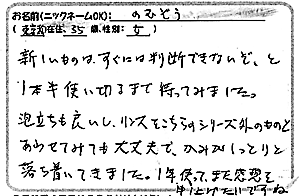 お名前(ニックネームOK): のむぞう
(東京都在住, 35 歳, 性別: 女 )
新しいものは、すぐには判断できないぞ、と
1本半使い切るまで待ってみました。
泡立ちも良いし、リンスをこちらのシリーズ外のものと
あわせてみても大丈夫で、かみがしっとりと
落ち着いてきました。1年使って、また感想を
申し上げたいですね